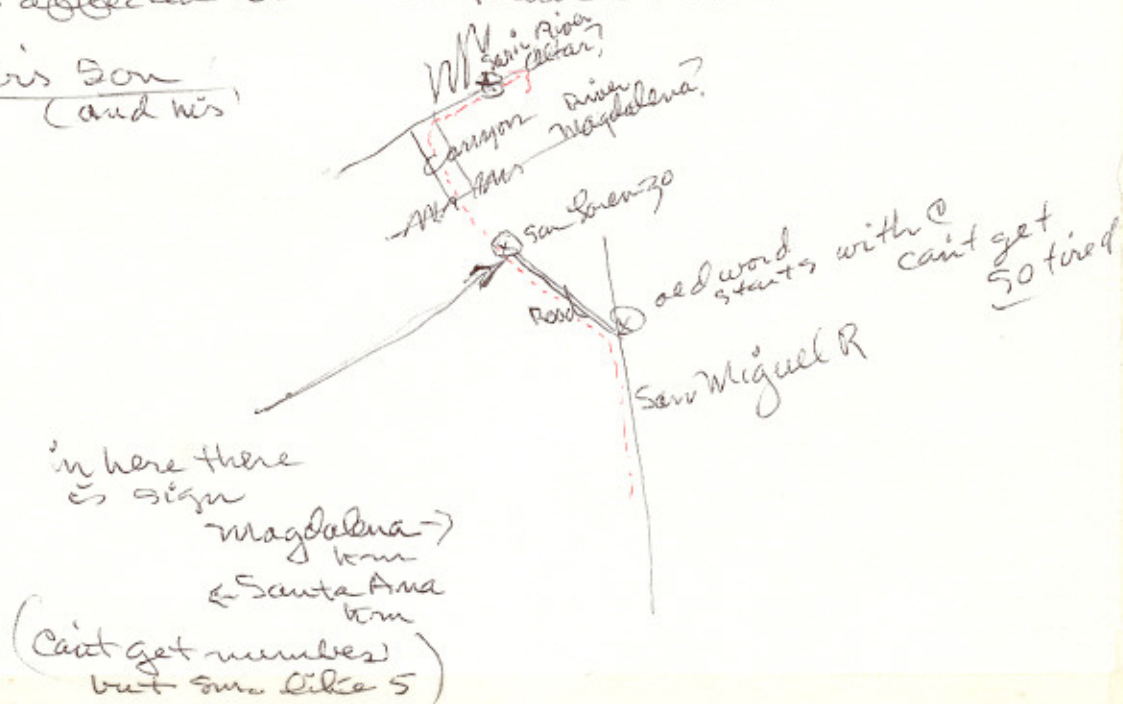 is Son
(and his
Saric River
Altar?
Canyon River
Magdalena?
San Lorenzo
old word
starts with C
can't get
so tired
Road
San Miguel R
in here there
is sign
Magdalena →
km
← Santa Ana
km
(Can't get number
but sm. like 5)